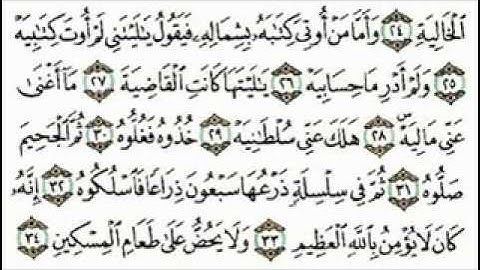 ٱلۡخَالِيَةِ ٢٤ وَأَمَّا مَنۡ أُوتِيَ كِتَٰبَهُۥ بِشِمَالِهِۦ فَيَقُولُ يَٰلَيۡتَنِي لَمۡ أُوتَ كِتَٰبِيَهۡ
٢٥ وَلَمۡ أَدۡرِ مَا حِسَابِيَهۡ ٢٦ يَٰلَيۡتَهَا كَانَتِ ٱلۡقَاضِيَةَ ٢٧ مَآ أَغۡنَىٰ
عَنِّي مَالِيَهۡۜ ٢٨ هَلَكَ عَنِّي سُلۡطَٰنِيَهۡ ٢٩ خُذُوهُ فَغُلُّوهُ ٣٠ ثُمَّ ٱلۡجَحِيمَ
صَلُّوهُ ٣١ ثُمَّ فِي سِلۡسِلَةٖ ذَرۡعُهَا سَبۡعُونَ ذِرَاعٗا فَٱسۡلُكُوهُ ٣٢ إِنَّهُۥ
كَانَ لَا يُؤۡمِنُ بِٱللَّهِ ٱلۡعَظِيمِ ٣٣ وَلَا يَحُضُّ عَلَىٰ طَعَامِ ٱلۡمِسۡكِينِ ٣٤